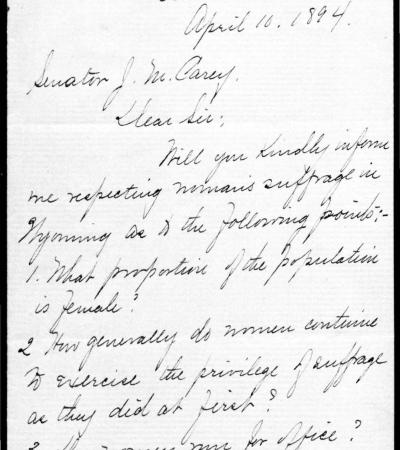 April 10, 1894.
Senator J. M. Carey.
Dear Sir;
Will you kindly inform
me respecting woman's suffrage in
Wyoming as to the following points:-
1. What proportion of the population
is female?
2 How generally do women continue
to exercise the privilege of suffrage
as they did at first?
women run for office?